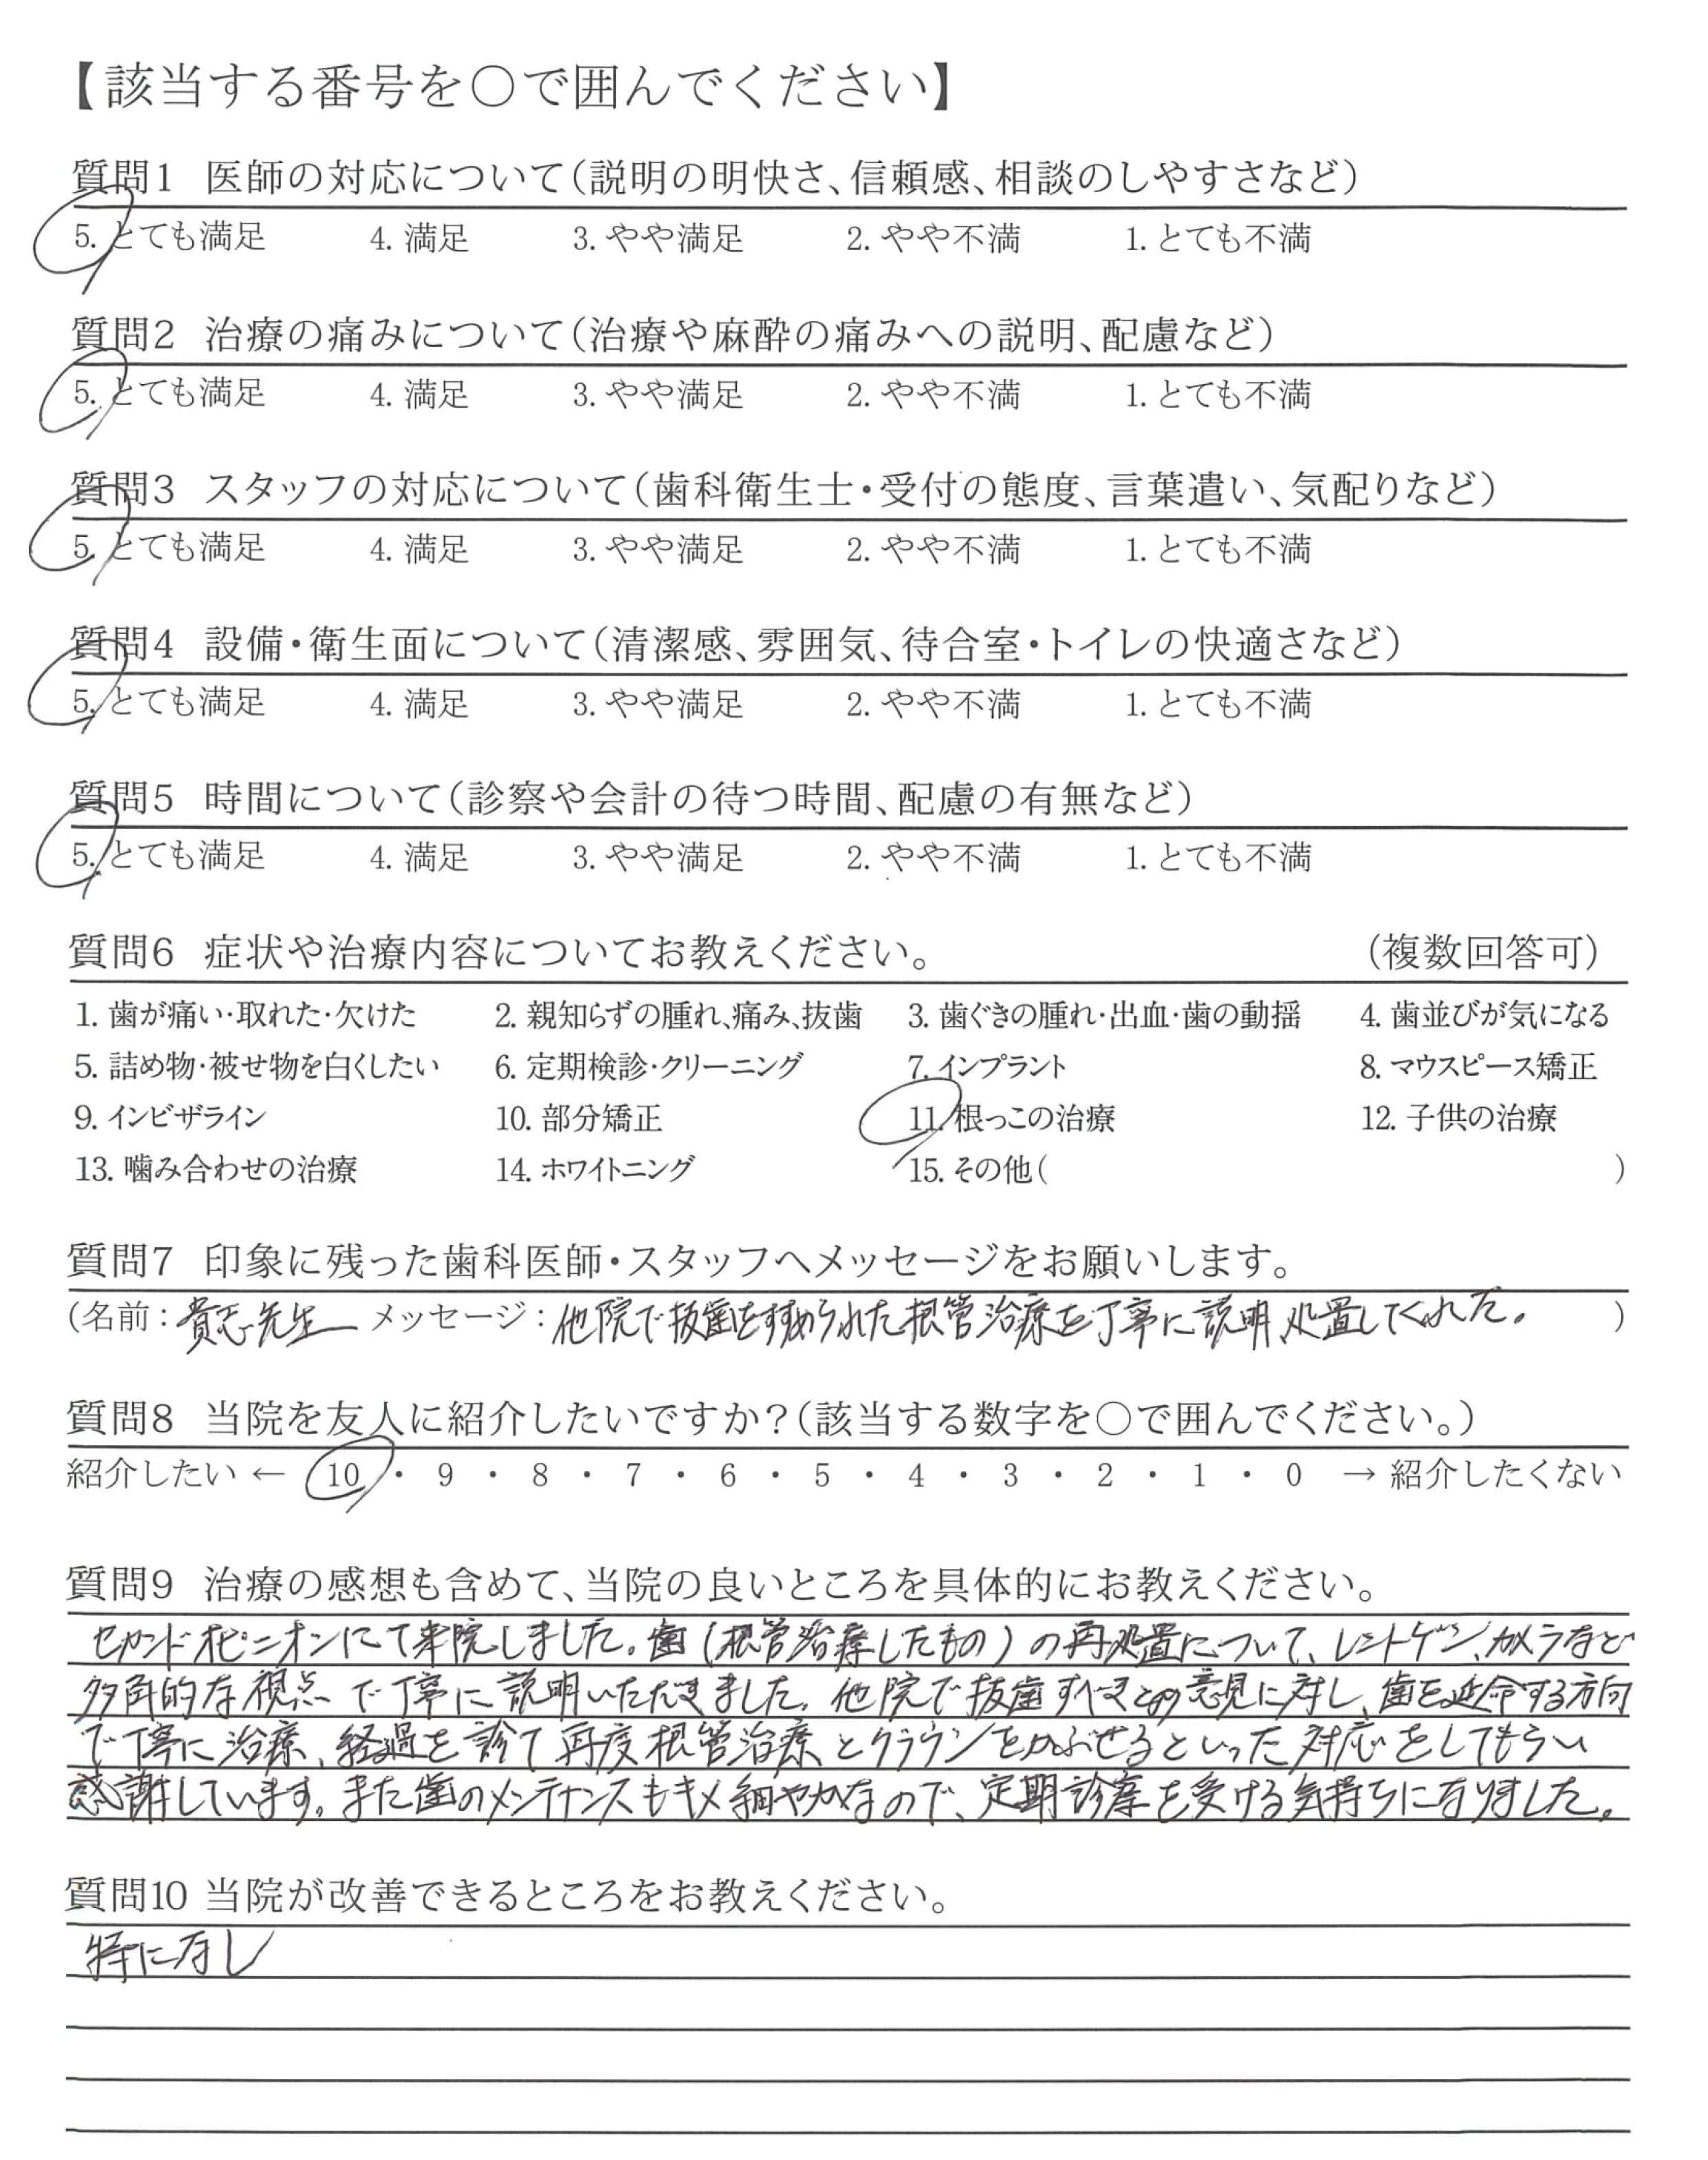 【該当する番号を〇で囲んでください】
質問1 医師の対応について(説明の明快さ、信頼感、相談のしやすさなど)
5. とても満足 4. 満足 3. やや満足 2. やや不満 1. とても不満
質問2 治療の痛みについて(治療や麻酔の痛みへの説明、配慮など)
5. とても満足 4. 満足 3. やや満足 2. やや不満 1. とても不満
質問3 スタッフの対応について(歯科衛生士・受付の態度、言葉遣い、気配りなど)
5. とても満足 4. 満足 3. やや満足 2. やや不満 1. とても不満
質問4 設備・衛生面について(清潔感、雰囲気、待合室・トイレの快適さなど)
5. とても満足 4. 満足 3. やや満足 2. やや不満 1. とても不満
質問5 時間について(診察や会計の待つ時間、配慮の有無など)
5. とても満足 4. 満足 3. やや満足 2. やや不満 1. とても不満
質問6 症状や治療内容についてお教えください。 (複数回答可)
1. 歯が痛い・取れた・欠けた 2. 親知らずの腫れ、痛み、抜歯 3. 歯ぐきの腫れ・出血・歯の動揺 4. 歯並びが気になる
5. 詰め物・被せ物を白くしたい 6. 定期検診・クリーニング 7. インプラント 8. マウスピース矯正
9. インビザライン 10. 部分矯正 11. 根っこの治療 12. 子供の治療
13. 噛み合わせの治療 14. ホワイトニング 15. その他( )
質問7 印象に残った歯科医師・スタッフへメッセージをお願いします。
(名前:貴志先生 メッセージ:他院で抜歯をすすめられた根管治療を丁寧に説明、処置してくれた。 )
質問8 当院を友人に紹介したいですか?(該当する数字を〇で囲んでください。)
紹介したい ← 10 ・ 9 ・ 8 ・ 7 ・ 6 ・ 5 ・ 4 ・ 3 ・ 2 ・ 1 ・ 0 → 紹介したくない
質問9 治療の感想も含めて、当院の良いところを具体的にお教えください。
セカンドオピニオンにて来院しました。歯(根管治療したもの)の再処置について、レントゲン、カメラなど
多角的な視点で丁寧に説明いただきました。他院で抜歯すべきとの意見に対し、歯を延命する方向
で丁寧に治療、経過を診て再度根管治療とクラウンをかぶせるといった対応をしてもらい
感謝しています。また歯のメンテナンスもキメ細やかなので、定期診察を受ける気持ちになりました。
質問10 当院が改善できるところをお教えください。
特になし